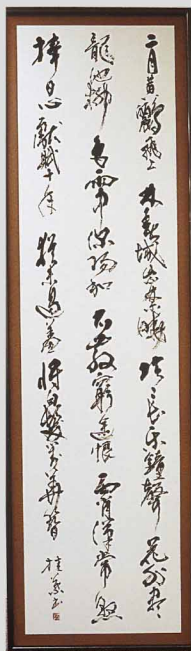 二月黄鸝飛上林春城紫禁曉陰陰長樂鐘聲花外盡
龍池柳色雨中深陽和不散窮途恨霄漢常懸
捧日心獻賦十年猶未遇羞將白髮對華簪